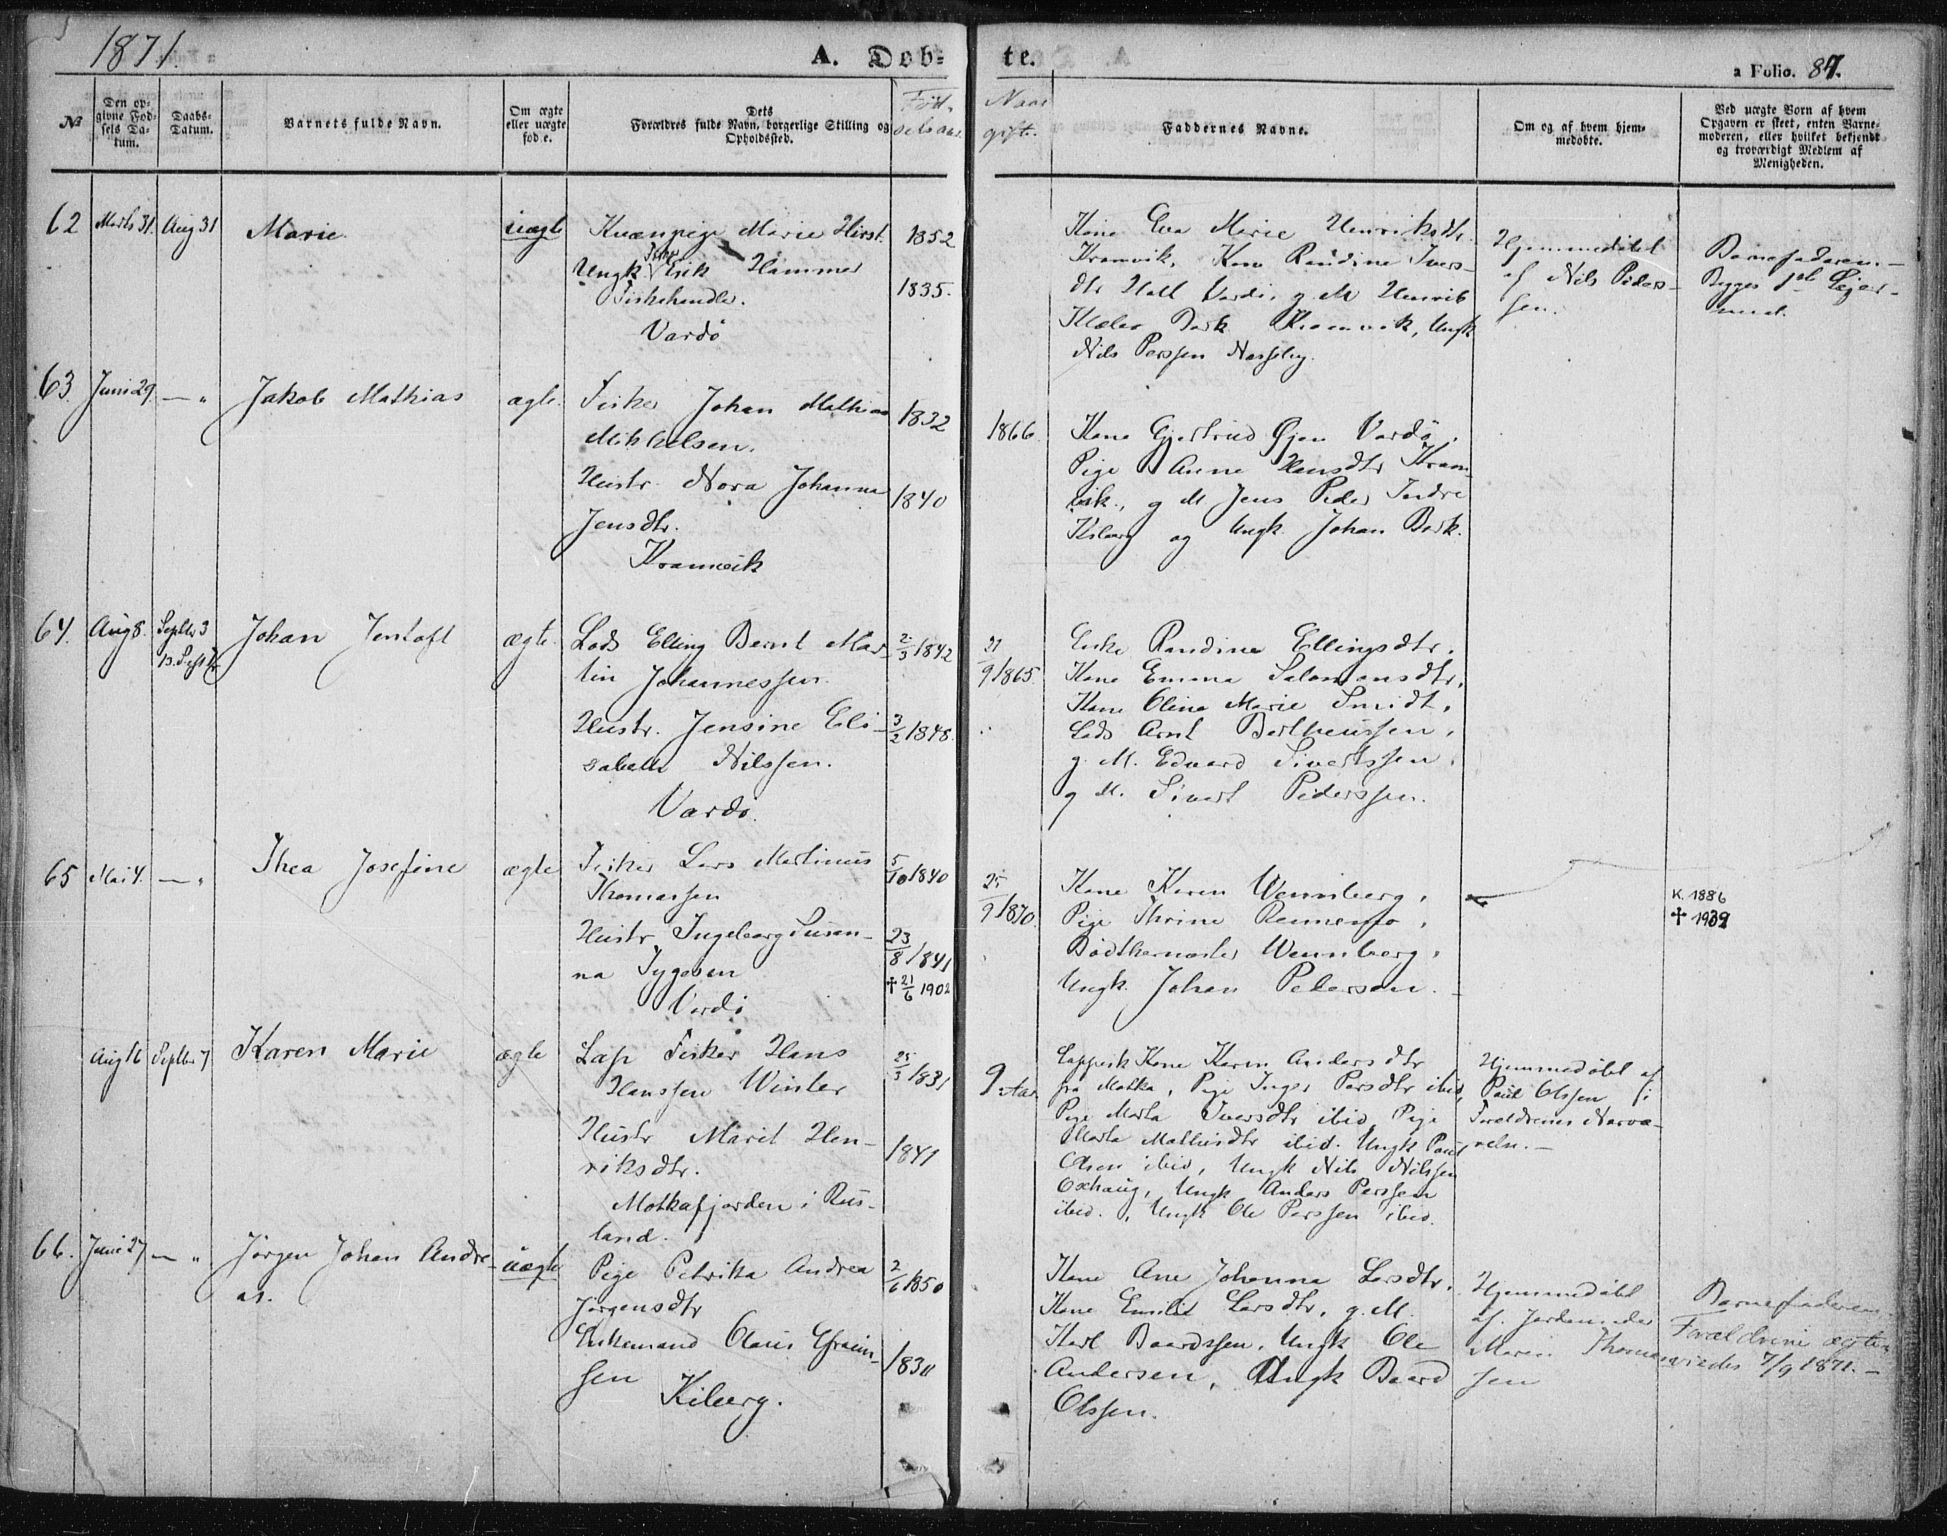 1871.
A. Dob-
te.
a Folio. 87.
№
Den op-
givne Fød-
sels Da-
tum.
Daabs-
Datum.
Barnets fulde Navn.
Om ægte
eller uægte
fød e.
Dets
Forældres fulde Navn, borgerlige Stilling og
Opholdssted.
Fød-
selsaar.
Naar
gift.
Faddernes Navne.
Om og af hvem hjem-
medøbte.
Ved uægte Børn af hvem
Opgaven er skeet, enten Barne-
moderen, eller hvilket bekjendt
og troværdigt Medlem af
Menigheden.
62 Marts 31. Aug 31 Marie. uægte
Kvænpige Marie Hirst. 1852
Ungk Erik Hammer 1835.
Fiskehandler.
Vardø
Kone Eva Marie Henriksdtr.
Kramvik, Kone Randine Ivers-
dtr Vardø, g M Henrik
Kramvik, Ungk
Nils Perssen Nesseby.
Hjemmedøbt
af Nils Peders-
sen.
Barnefaderen.-
Begges 1ste Leger-
maal.
63. Juni 29. — " Jakob Mathias ægte.
Fisker Johan Mathias 1832
Mikkelsen.
Hustr. Nora Johanna 1840
Jensdtr.
Kramvik
1866.
Kone Gjertrud Øjen Vardø.
Pige Anne Hansdtr Kram-
vik., g M Jens Peder Indre
Kiberg og Ungk. Johan Bork.
64. Aug 8. Septbr 3 Johan Jentoft ægte.
13. Septbr
Lods Elling Bernt Mar- 2/3 1842
tin Johannessen.
Hustr. Jensine Eli- 3/2 1848.
sabeth Nilssen.
Vardø.
21/9 1865.
Enke Randine Ellingsdtr.
Kone Emma Salomonsdtr.
Kone Oline Marie Smidt.
Lods Arnt Bertheussen.
g. M. Edvard Sivertssen.
g M. Sivert Pederssen.
65 Mai 4. — " Thea Josefine ægte
Fisker Lars Martinus 5/10 1840
Thomassen
Hustr Ingeborg Susan- 23/8 1841
na Tygesen † 21/6 1902
Vardø
25/9 1870.
Kone Karen Wennberg.
Pige Thrine
Bødtkermester Wennberg.
Ungk. Johan Pedersen.
K. 1886
† 1939
Aug 16 Septbr 7 Karen Marie ægte
Lap Fisker Hans 25/3 1831
Hanssen Winter
Hustr Marit Hen- 1841
riksdtr.
Motkafjorden i Rus-
land.
9 Aar
Lappisk Kone Karen Andersdtr
fra Motka, Pige Inger Persdtr ibid,
Pige Marta Iversdtr ibid, Pige
Marta Mathisdtr ibid. Ungk Paul
Olsen ibid, Ungk Nils Nilssen
Oxhaug, Ungk Anders Perssen
ibid., Ungk Ole Perssen ibid.
Hjemmedøbt af
Paul Olssen i
Forældrenes Nærvæ-
relse.-
66. Juni 27 — " Jørgen Johan Andre- uægte
as.
Pige Petrikka Andrea 2/6 1850
Jørgensdtr
Enkemand Olaus Efraim- 1830
sen
Kiberg.
Kone Ane Johanna Larsdtr.
Kone Emilie Larsdtr, g. M.
Karl Baardssen, Ungk Ole
Andersen, Ungk Baard
Olssen.
Hjemmedøbt
af Jordemoder
Maren Thomas-
sen
Barnefaderen.
Forældrene ægte-
viede 7/9 1871.-